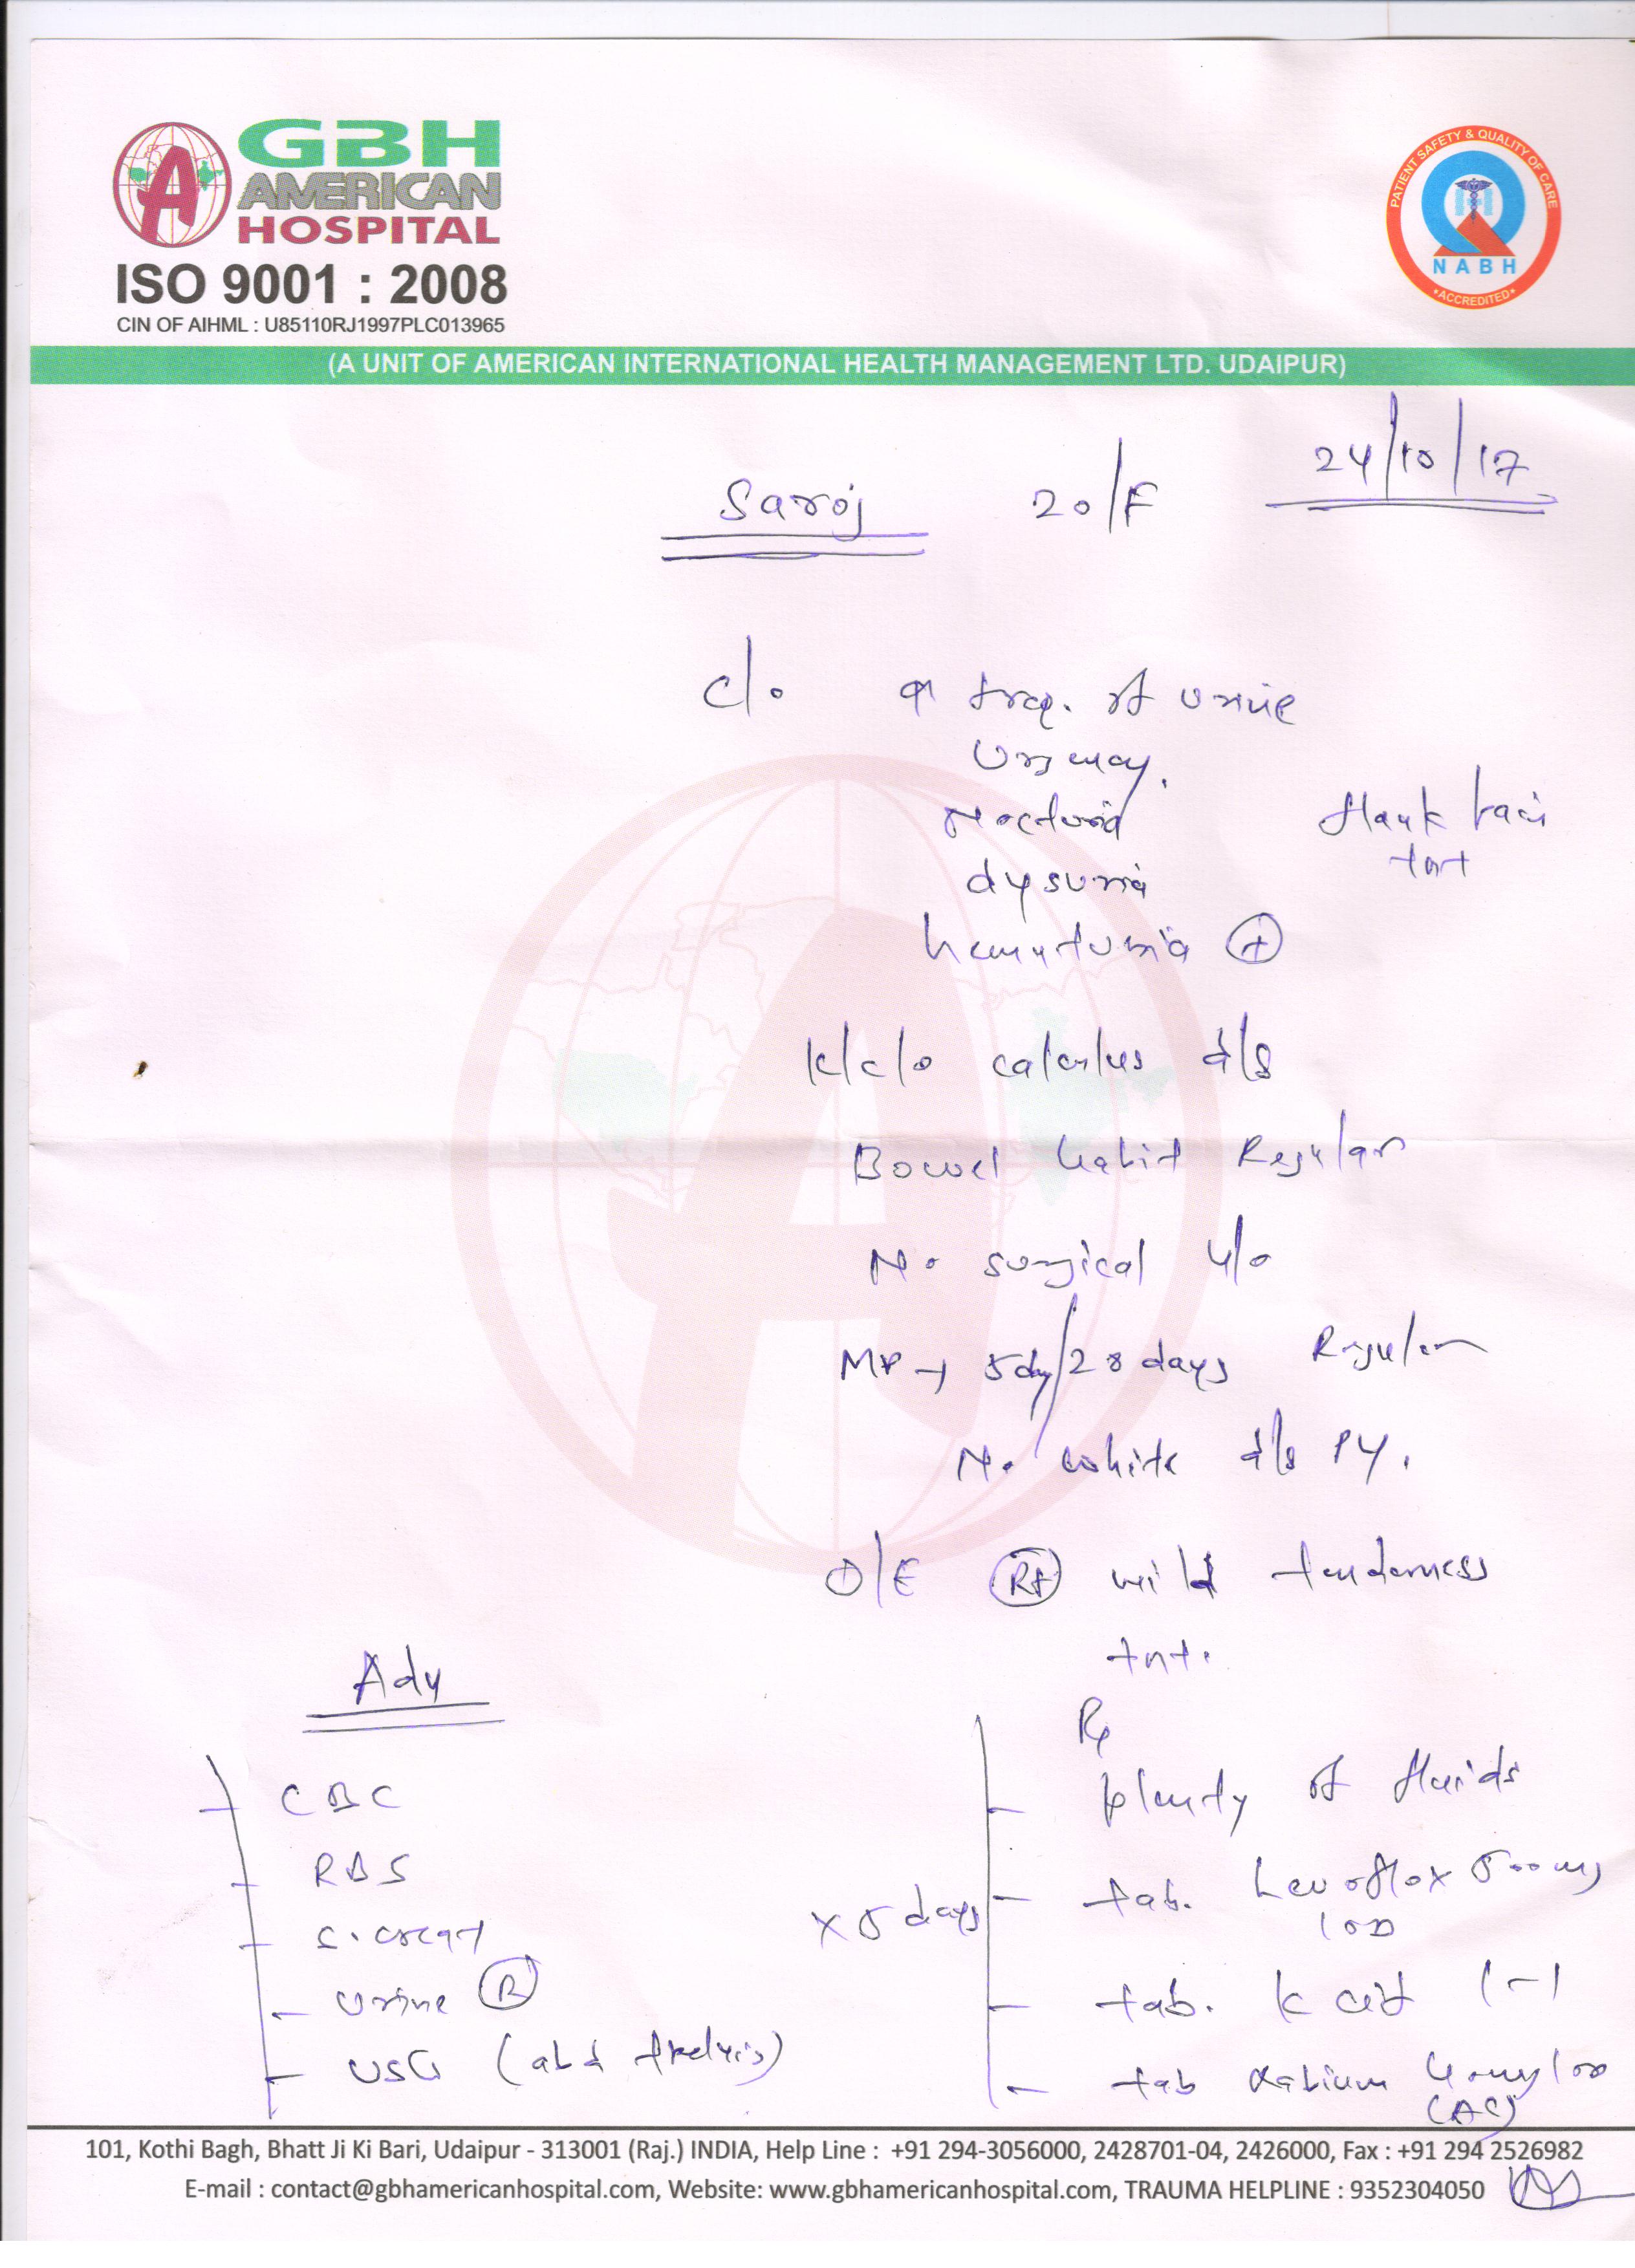 GBH
AMERICAN
HOSPITAL
ISO 9001 : 2008
CIN OF AIHML : U85110RJ1997PLC013965
PATIENT SAFETY & QUALITY OF CARE
NABH
•ACCREDITED•
(A UNIT OF AMERICAN INTERNATIONAL HEALTH MANAGEMENT LTD. UDAIPUR)
24/10/17
Saroj 20/F
c/o ↑ freq. of urine
Urgency.
Nocturia flank pain
dysuria +nt
hematuria (+)
k/c/o calculus d/s
Bowel habit Regular
No surgical h/o
MP → 5day/28 days Regular
No white d/s PV.
O/E (Rt) mild tenderness
+nt.
Adv
Rx
CBC plenty of fluids
RBS tab. Levoflox 500mg
x 5 days 1OD
S. creat
Urine (R) tab. k cit 1-1
USG (abd + pelvis) tab Rabium 40mg 1OD
(AC)
101, Kothi Bagh, Bhatt Ji Ki Bari, Udaipur - 313001 (Raj.) INDIA, Help Line : +91 294-3056000, 2428701-04, 2426000, Fax : +91 294 2526982
E-mail : contact@gbhamericanhospital.com, Website: www.gbhamericanhospital.com, TRAUMA HELPLINE : 9352304050